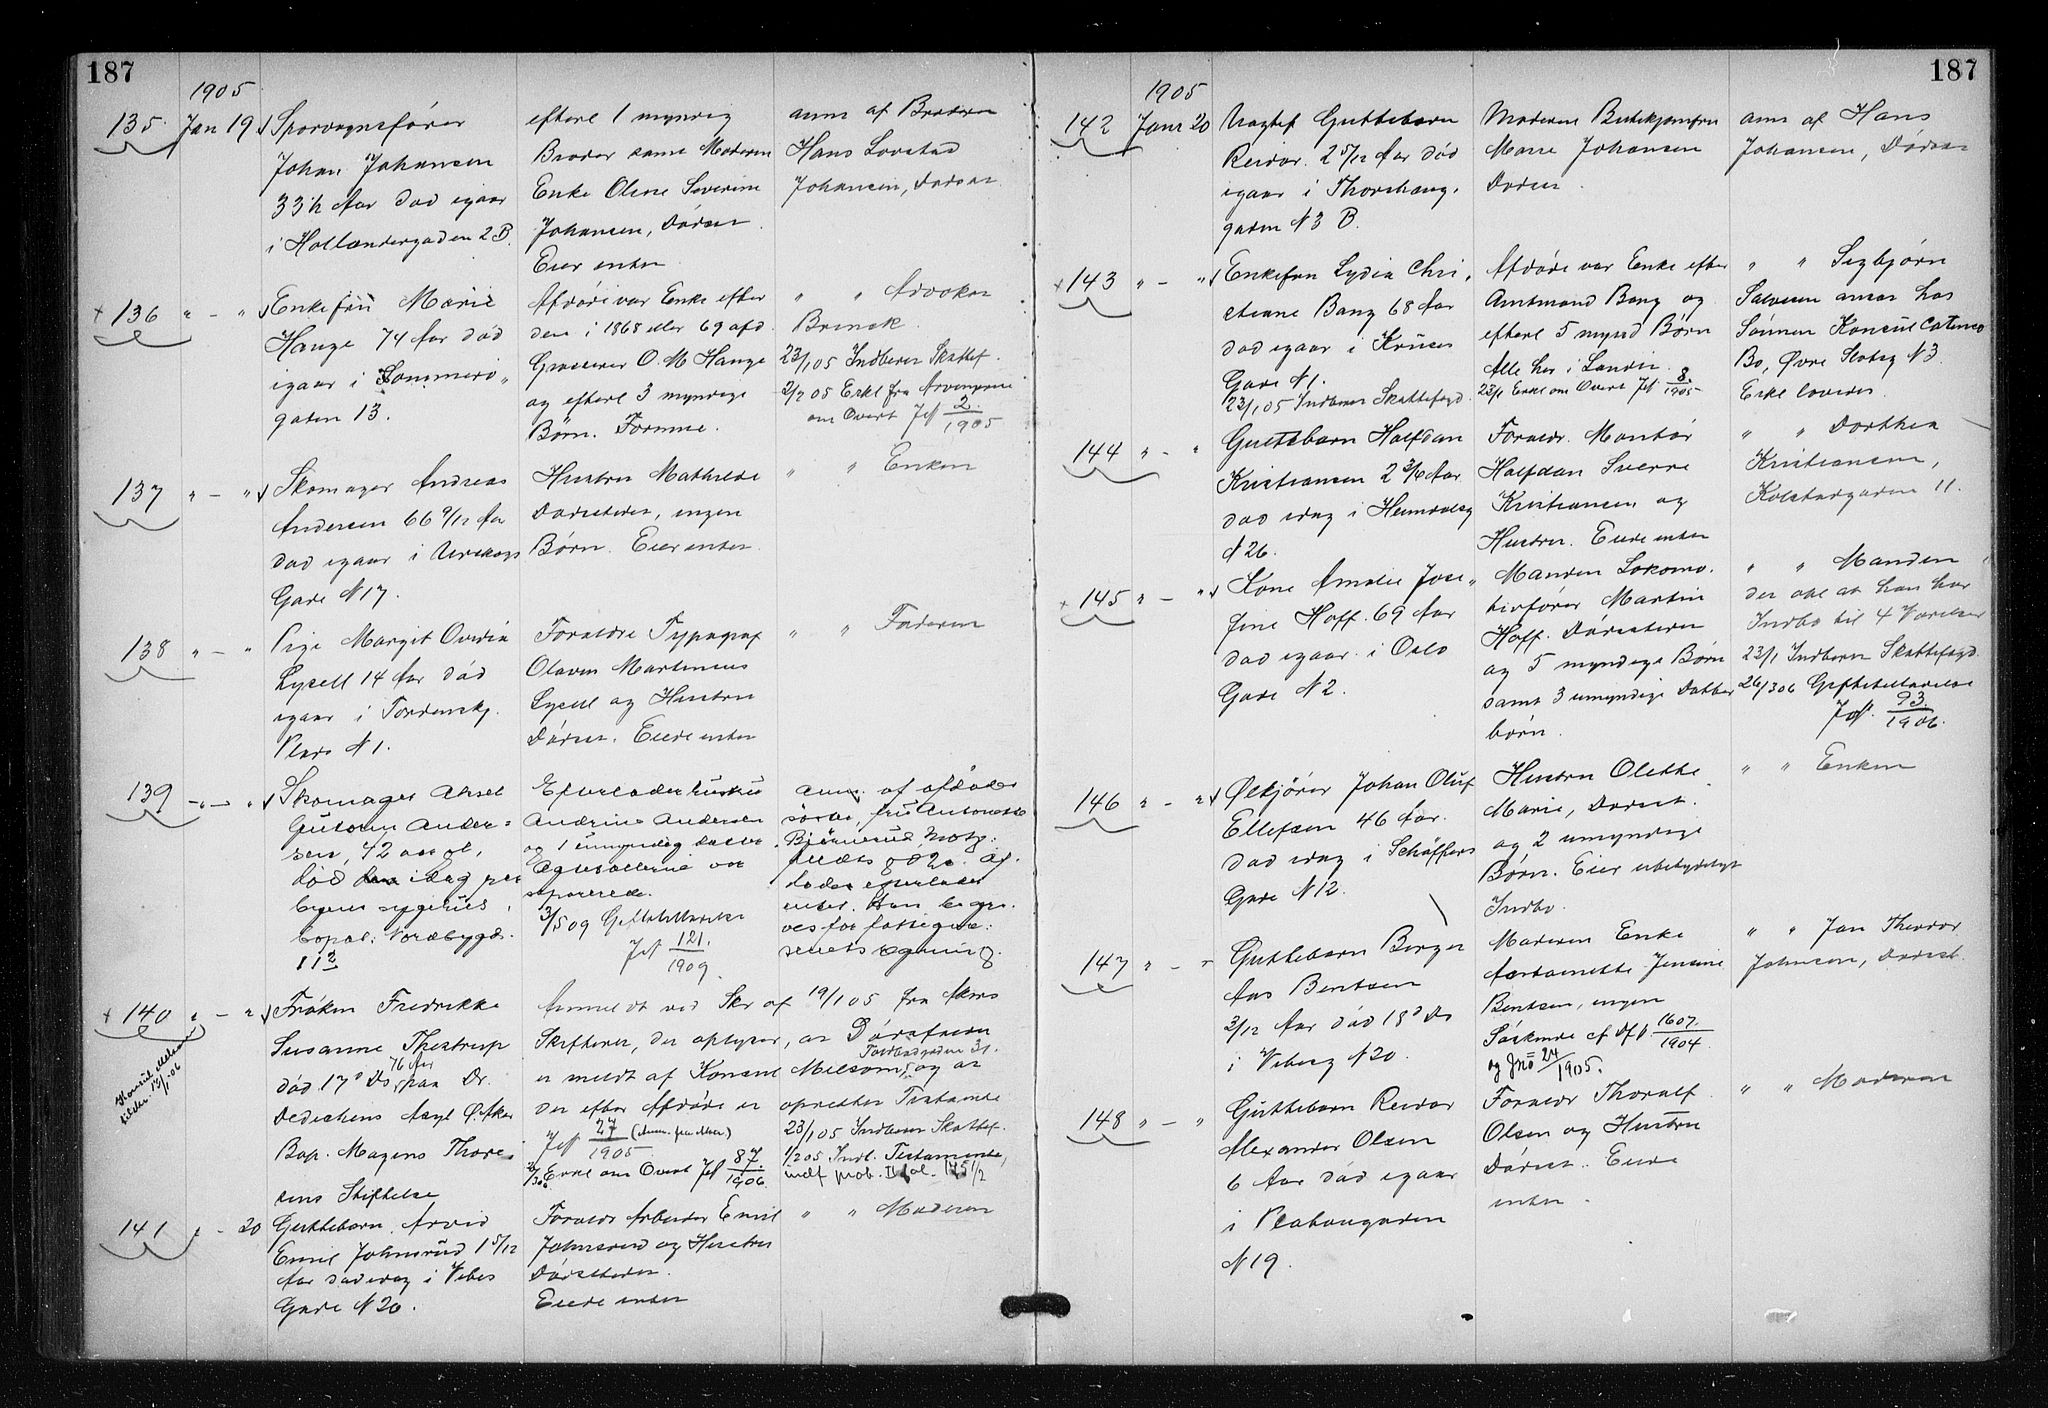 187
1905
135 Jan 19 Sporvognsfører
Johan Johansen
33½ Aar død igaar
i Hollændergaden 2 B.
efterl 1 myndig
Broder samt Moderen
Enke Oline Severine
Johansen, Dødsst
Eier intet
anm af Broderen
Hans Lovstad
Johansen, Dødsst
+ 136 " - " Enkefru Marie
Hauge 74 Aar død
igaar i Sommerro"
gaten 13.
Afdøde var Enke efter
den i 1868 eller 69 afd.
Grosserer O. M Hauge
og efterl 3 myndige
Børn. Formue.
" " Advokat
Brinck.
23/1 05 Indberet Skattef.
2/2 05 Erkl fra Arvingerne
om Overt Jf 2/1905
137 " - " Skomager Andreas
Andersen 66 9/12 Aar
død igaar i Urskogs
Gade N 17.
Hustru Mathilde
Dødsstedet, ingen
Børn. Eier intet.
" " Enken
138 " - " Pige Margit Ovidia
Lysell 14 Aar død
igaar i Tordenskj.
Plads N 1.
Forældre Typograf
Olaven Martinius
Lysell og Hustru
Dødsst. Eiede intet
" " Faderen
139 - " - " Skomager Aksel
Gustorm Ander=
sen, 42 aar gl,
død idag paa
byens sygehus,
bopæl: Nordbygd.
11 2
Efterlader hustru
Andrine Andersen
og 1 umyndig datter.
Ægtefællerne var
separerede.
3/5 09 Gjeftebilladelse
Jf 121./1909.
anm. af afdødes
søster, fru Antonette
Bjørnerud, Motz=
feldts gd 20. Af=
døde efterlader
intet. Han begra=
ves for fattigvæ=
senets regning
+ 140 " - " Frøken Fredrikke
Susanne Thestrup
76 Aar
død 17d Ds paa Dr.
Dedichens Asyl Ø. Aker
Bop. Mogens Thore=
sens Stiftelse
Konsul Melsom
tilder. 17/1 06
Anmeldt ved Skr af 19/1 05 fra Akers
Skifteret, der oplyser, at Dødsfaldet
Forbedgaden 31.
er meldt af Konsul Melsom, og at
der efter Afdøde er oprettet Testamente
Jf 27/1905 (Anm. fra Aker)
Erkl om Overt Jf 87./1906.
23/1 05 Indberet Skattef.
1/2 05 Indl. Testamente,
indf prob. II fol. 145 1/2
141 " - 20 Guttebarn Arvid
Emil Johnsrud 1 5/12
Aar død idag i Vibes
Gade N 20.
Forældr Arbeider Emil
Johnsrud og Hustru
Dødsstedet.
Eiede intet
" " Moderen
187
1905
142 Janr 20 Uægtef Guttebarn
Reidar. 2 5/12 Aar død
igaar i Thorshaug,
gaden N 3 B.
Moderen Butikjomfru
Marie Johansen
Dødsst.
anm af Hans
Johansen, Dødsst
+ 143 " - " Enkefru Lydia Chri,
stiane Bang 68 Aar
død igaar i Kruses
Gade N 1.
23/1 05 Indberet Skattefogd.
Afdøde var Enke efter
Amtmand Bang og
efterl 5 mynd Børn
Alle her i Landet.
23/1 Erkl om Overt Jf 8./1905
" " Sigbjørn
Salvesen ansat hos
Sønnen Konsul Catinco
Bo, Øvre Slotsg N 3
Erkl lovedes.
144 " - " Guttebarn Halfdan
Kristiansen 2 3/4 Aar
død idag i Heimdalsg
N 26.
Forældr. Montør
Halfdan Sverre
Kristiansen og
Hustru. Eiede intet
" " Dorthea
Kristiansen,
Kolstadgaden 11.
+ 145 " - " Kone Amalie Jose"
fine Hoff. 69 Aar
død igaar i Oslo
Gade N 2.
Manden Lokomo.
tivfører Martin
Hoff. Dødsstedet
og 5 myndige Børn
samt 3 umyndige Datter
børn.
" " Manden
der opl at han har
Indbo til 4 Værelser
23/1 Indberet Skattefogd.
26/3 06 Gjeftebilladelse
Jf. 93./1906.
146 " - " Ølkjører Johan Oluf
Ellefsen 46 Aar.
død idag i Schäffers
Gade N 12.
Hustru Olette
Marie, Dødsst.
og 2 umyndige
Børn. Eier ubetydeligt
Indbo.
" " Enken
147 " - " Guttebarn Birger
Aas Bentsen
3/12 Aar død 18d Ds
i Vibesg N 20.
Moderen Enke
Antonette Jensine
Bentsen, ingen
Søskende cf Df 1607./1904.
og Jno 24/1905.
" " Jan Theodor
Johnsen, Dødsst.
148 " - " Guttebarn Reidar
Alexander Olsen
6 Aar død igaar
i Platougaden
N 19.
Forældr Thoralf
Olsen og Hustru
Dødsst. Eiede
intet.
" " Moderen